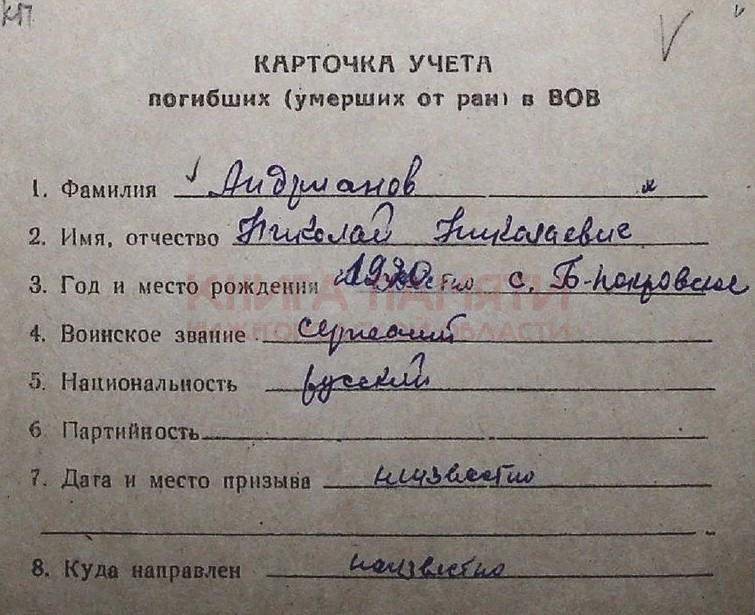 КП
КАРТОЧКА УЧЕТА
погибших (умерших от ран) в ВОВ
1. Фамилия Андрианов
2. Имя, отчество Николай Николаевич
3. Год и место рождения 1920 с. Б-покровское
4. Воинское звание сержант
5. Национальность русский
6. Партийность
7. Дата и место призыва неизвестно
8. Куда направлен неизвестно
КНИГА ПАМЯТИ
НИЖЕГОРОДСКОЙ ОБЛАСТИ